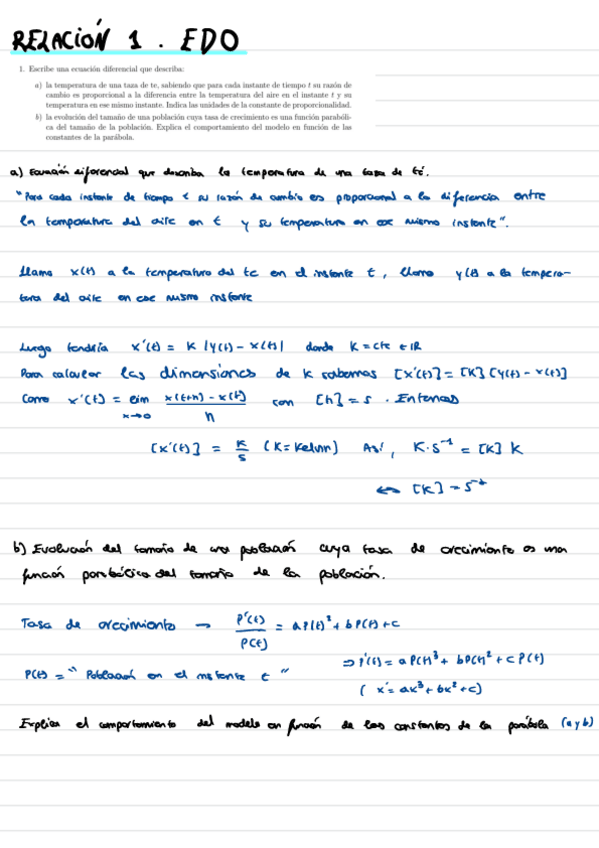 RELACIÓN 1. EDO
1. Escribe una ecuación diferencial que describa:
a) la temperatura de una taza de te, sabiendo que para cada instante de tiempo t su razón de
cambio es proporcional a la diferencia entre la temperatura del aire en el instante t y su
temperatura en ese mismo instante. Indica las unidades de la constante de proporcionalidad.
b) la evolución del tamaño de una población cuya tasa de crecimiento es una función parabóli-
ca del tamaño de la población. Explica el comportamiento del modelo en función de las
constantes de la parábola.
a) Ecuación diferencial que describa la temperatura de una taza de té.
"Para cada instante de tiempo t su razón de cambio es proporcional a la diferencia entre
la temperatura del aire en t y su temperatura en ese mismo instante".
Llamo x(t) a la temperatura del te en el instante t, llamo y(t) a la tempera-
tura del aire en ese mismo instante
Luego tendría x'(t) = K |y(t) - x(t)| donde K = cte ∈ IR
Para calcular las dimensiones de K sabemos [x'(t)] = [K] [y(t) - x(t)]
Como x'(t) = lim x→0 x(t+h) - x(t) / h con [h] = s. Entonces
[x'(t)] = K/s (K = Kelvin) Así, K·s⁻¹ = [K] K
↔ [K] = s⁻¹
b) Evolución del tamaño de una población cuya tasa de crecimiento es una
función parabólica del tamaño de la población.
Tasa de crecimiento → P'(t)/P(t) = a P(t)² + b P(t) + c
⇒ P'(t) = a P(t)³ + b P(t)² + c P(t)
P(t) = "Población en el instante t"
(x' = ax³ + bx² + c)
Explica el comportamiento del modelo en función de las constantes de la parábola (a y b)